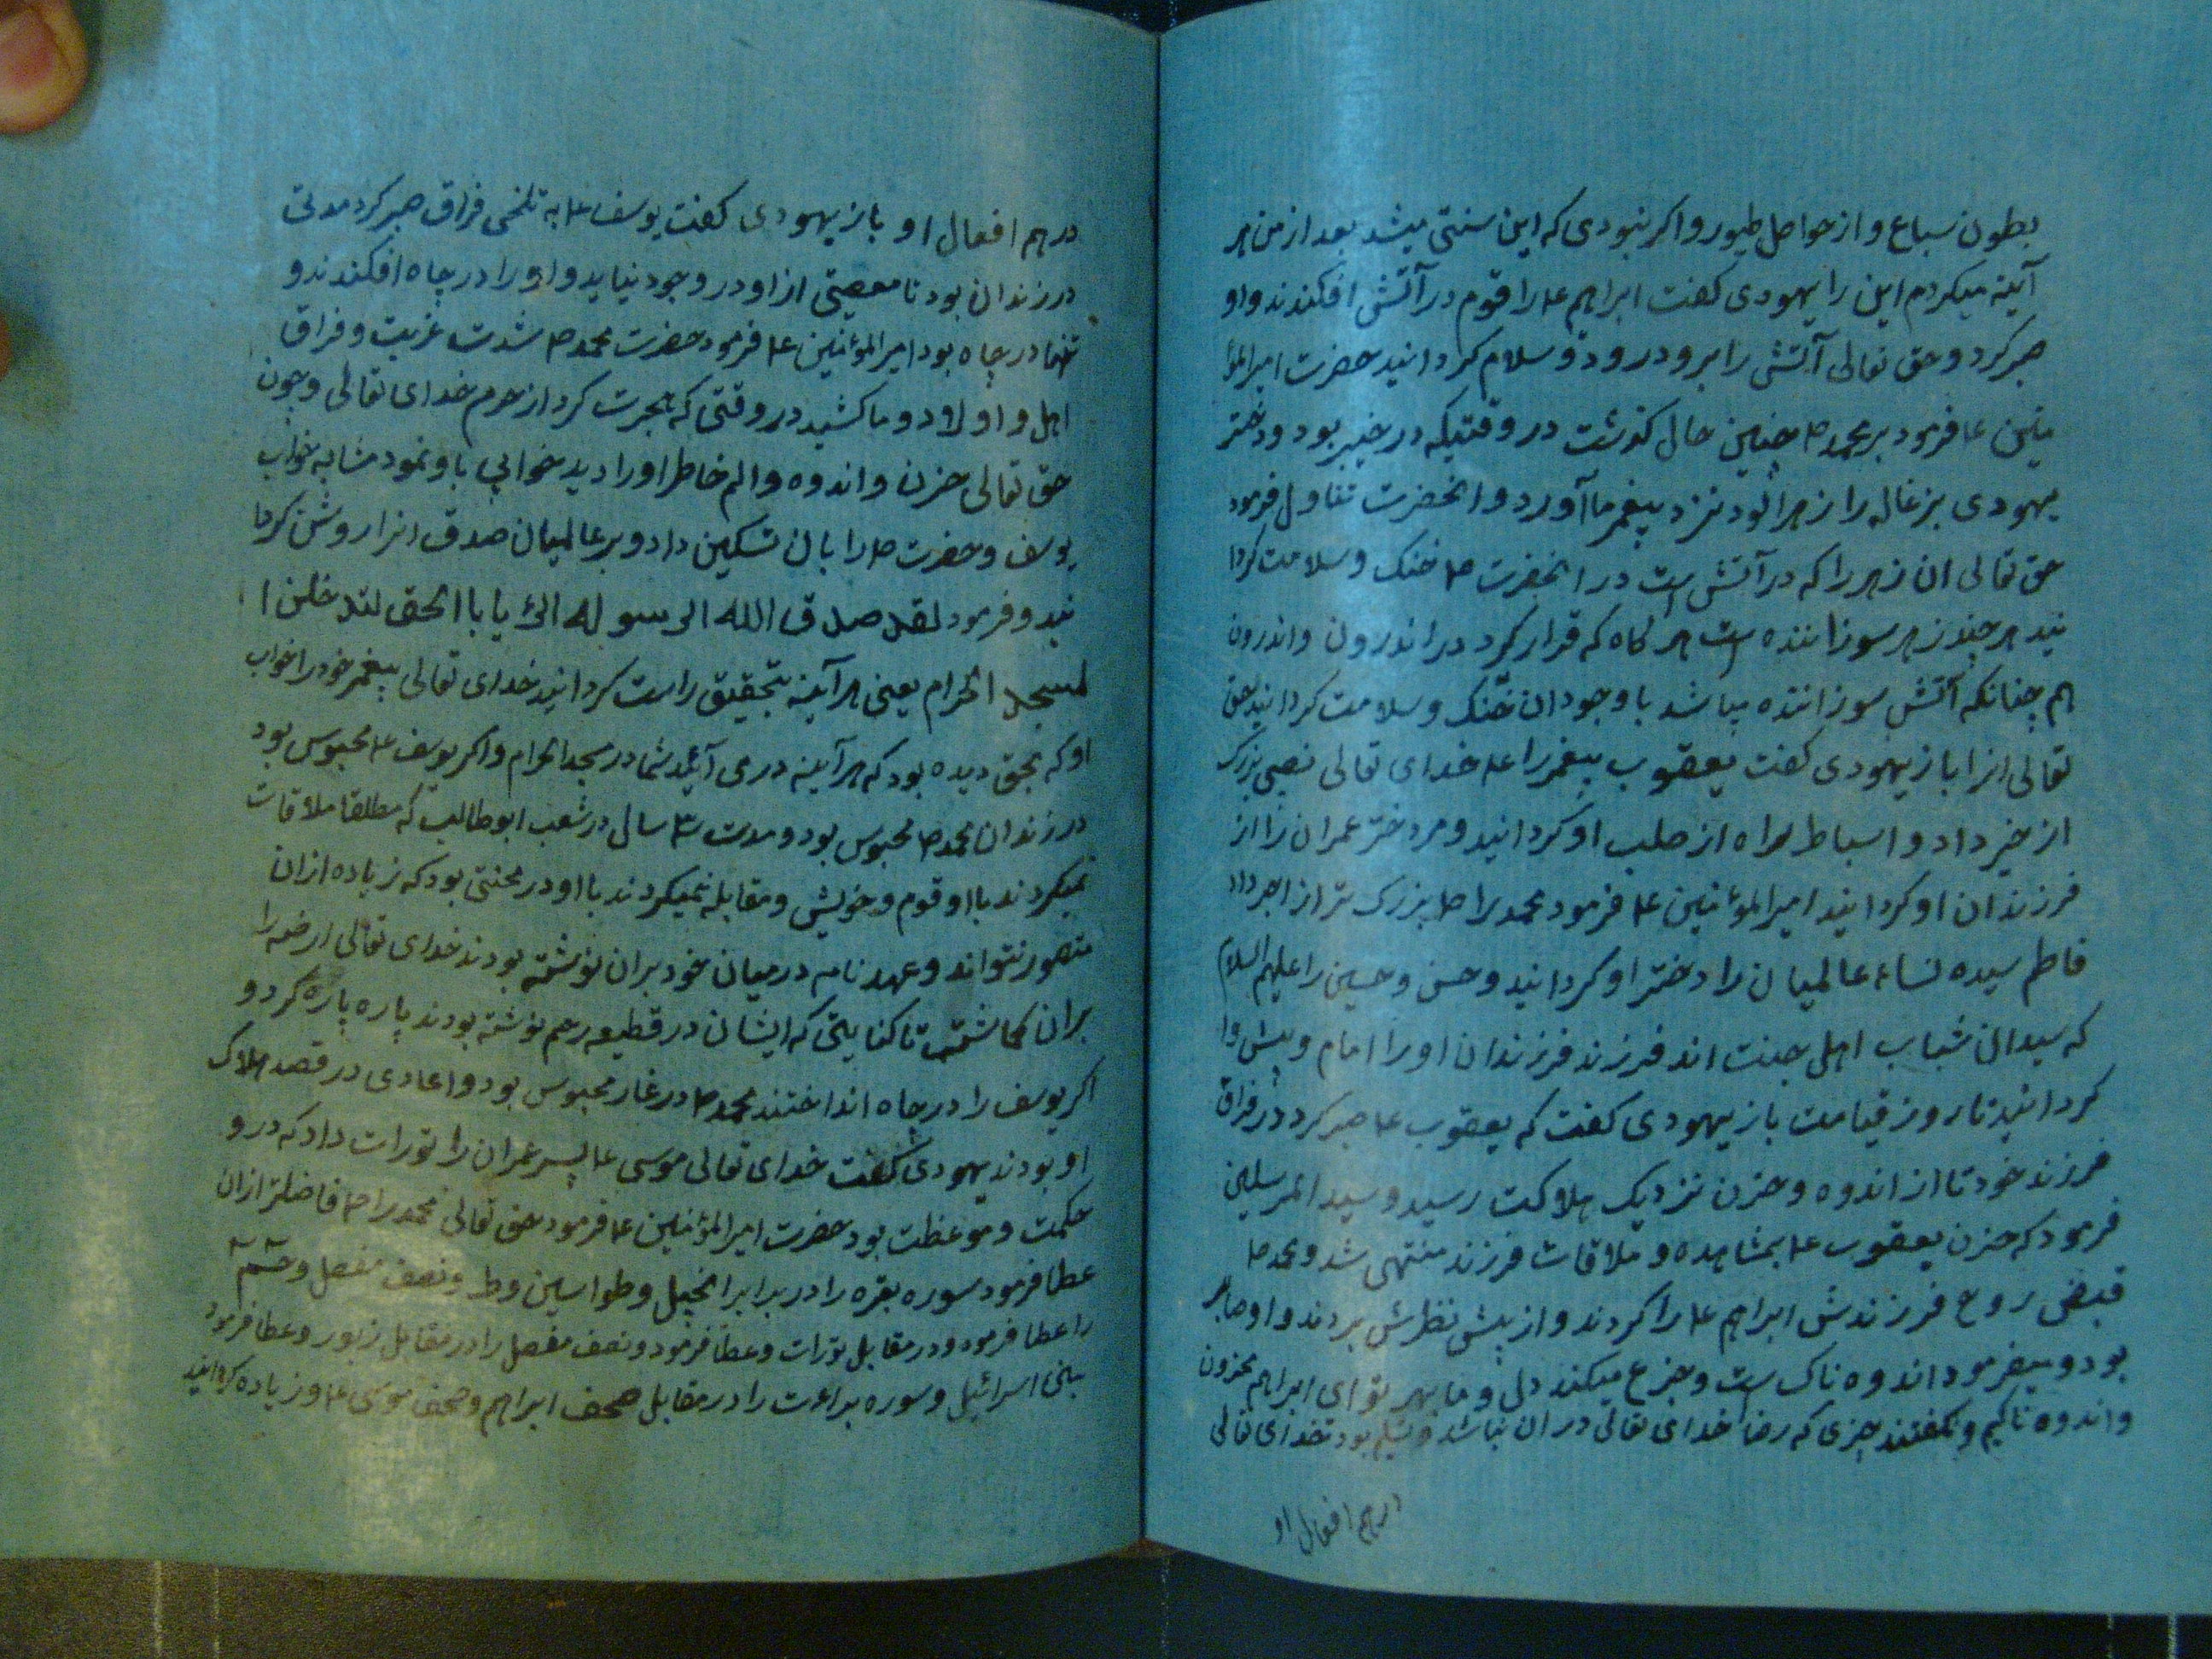 بطون سباع و از حواصل طیور و اگر نبودی که این سنتی میشد بعد از من هر
آینه میکردم این را یهودی کفت ابراهیم ع را قوم در آتش افکندند و او
صبر کرد و حق تعالی آتش را برو درود و سلام کردانید حضرت امیرالمؤ
منین ع فرمود بر محمد ص چنین حال کذشت در وقتیکه در خیبر بود و دختر
یهودی بزغاله را زهرآلود نزد پیغمر ما آورد و انحضرت تناول فرمود
حق تعالی ان زهر را که در آتش است در انحضرت ص خنک و سلامت کردا
نید هر چند زهر سوزاننده است هر کاه که قرار کرد در اندرون و اندرون
هم چنانکه آتش سوزاننده میباشد با وجود ان خنک و سلامت کردانید حق
تعالی انرا باز یهودی کفت یعقوب پیغمر را ع خدای تعالی نصیبی بزرک
از خیر داد و اسباط را از صلب او کردانید و مر دختر عمران را از
فرزندان او کردانید امیرالمؤمنین ع فرمود محمد را ص بزرک تر از اجر داد
فاطم سیده نساء عالمیان را دختر او کردانید و حسن و حسین را علیهم السلام
که سیدان شباب اهل جنت اند فرزند فرزندان او را امام و پیشوا
کردانید تا روز قیامت باز یهودی کفت که یعقوب ع صبر کرد در فراق
فرزند خود تا از اندوه و حزن نزدیک هلاکت رسید و سید المرسلین
فرمود که حزن یعقوب ع بمشاهده و ملاقات فرزند منتهی شد و محمد ص
قبض روح فرزندش ابراهیم ع را کردند و از پیش نظرش بردند و او صابر
بود و میفرمود اندوه ناک است و جزع میکند دل و ما بهر تو ای ابراهیم محزون
و اندوه ناکیم و نکفتند چیزی که رضا خدای تعالی در ان نباشد و تسلیم بود بخدای تعالی
در هم افعال او
در هم افعال او باز یهودی کفت یوسف ع به تلخی فراق صبر کرد مدتی
در زندان بود تا معصیتی از او در وجود نیاید و او را در چاه افکندند و
تنها در چاه بود امیرالمؤمنین ع فرمود حضرت محمد ص شدت غربت و فراق
اهل و اولاد و ما کشید در وقتی که هجرت کرد از حرم خدای تعالی و چون
حق تعالی حزن و اندوه و الم خاطر او را دید خوابی باو نمود مشابه خواب
یوسف و حضرت ص را بان تسکین داد و بر عالمیان صدق انرا روشن کردا
نید و فرمود لقد صدق الله الرسوله الرؤیا باالحق لتدخلن ا
لمسجد الحرام یعنی هر آینه بتحقیق راست کردانید خدای تعالی پیغمر خود را خواب
او که بحق دیده بود که هر آینه در می آئید شما در مسجد الحرام و اکر یوسف ع محبوس بود
در زندان محمد ص محبوس بود و مدت ۳ سال در شعب ابوطالب که مطلقا ملاقات
نمیکردند با او قوم و خویش و مقابله نمیکردند با او در محنتی بود که زیاده از ان
متصور نتواند و عهد نامه در میان خود بران نوشته بودند خدای تعالی ارضه را
بران کماشت تا کتابتی که ایشان در قطیعه رحم نوشته بودند پاره پاره کرد و
اکر یوسف را در چاه انداختند محمد ص در غار محبوس بود و اعادی در قصد هلاک
او بودند یهودی کفت خدای تعالی موسی ع پسر عمران را تورات داد که در و
حکمت و موعظت بود حضرت امیرالمؤمنین ع فرمود حق تعالی محمد را ص فاضلتر ازان
عطا فرمود سوره بقره را در برابر انجیل و طواسین و طه و نصف مفصل و حم
را عطا فرموده و در مقابل تورات و عطا فرمود و نصف مفصل را در مقابل زبور و عطا فرمود
بنی اسرائیل و سوره براءت را در مقابل صحف ابراهیم و صحف موسی ع و زیاده کردانید